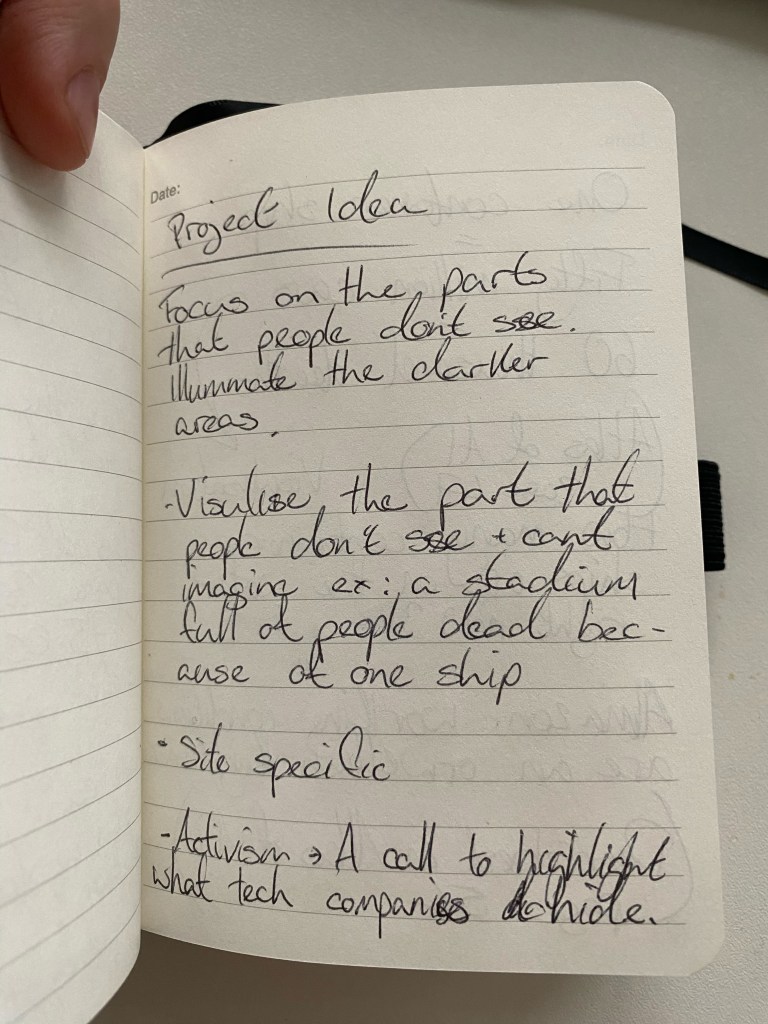 Date:
Project Idea
Focus on the parts
that people don't see.
Illummate the darker
areas.
-Visulise the part that
people don't see + cant
imagine ex: a stadium
full of people dead bec-
ause of one ship
· Site specific
-Activism → A call to highlight
what tech companies hide.